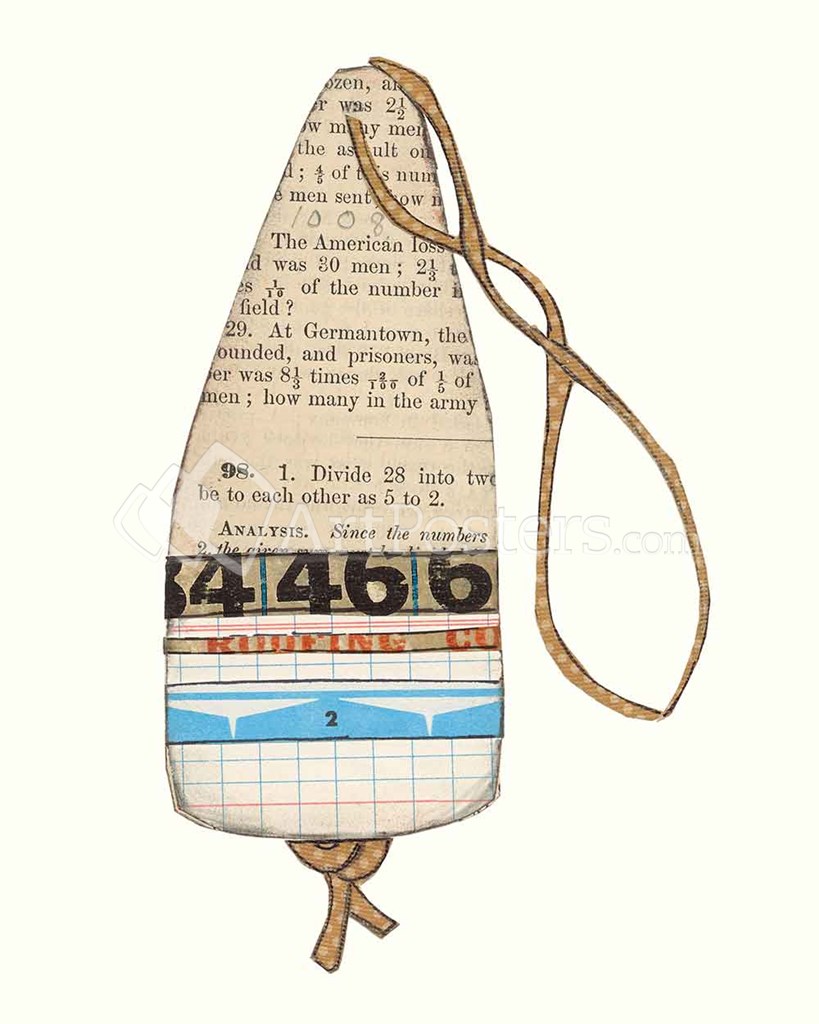 ozen, an
er was 2½
ow many men
the assault on
d; ⅘ of this num
e men sent, how n
1008
The American loss
d was 30 men; 2⅓ t
es 1/10 of the number i
field?
29. At Germantown, the
ounded, and prisoners, was
er was 8⅓ times 2/100 of ⅕ of
men; how many in the army
98. 1. Divide 28 into two
be to each other as 5 to 2.
ANALYSIS. Since the numbers
2, the given
34 466 6
ROOFING CO
2
ArtPosters.com